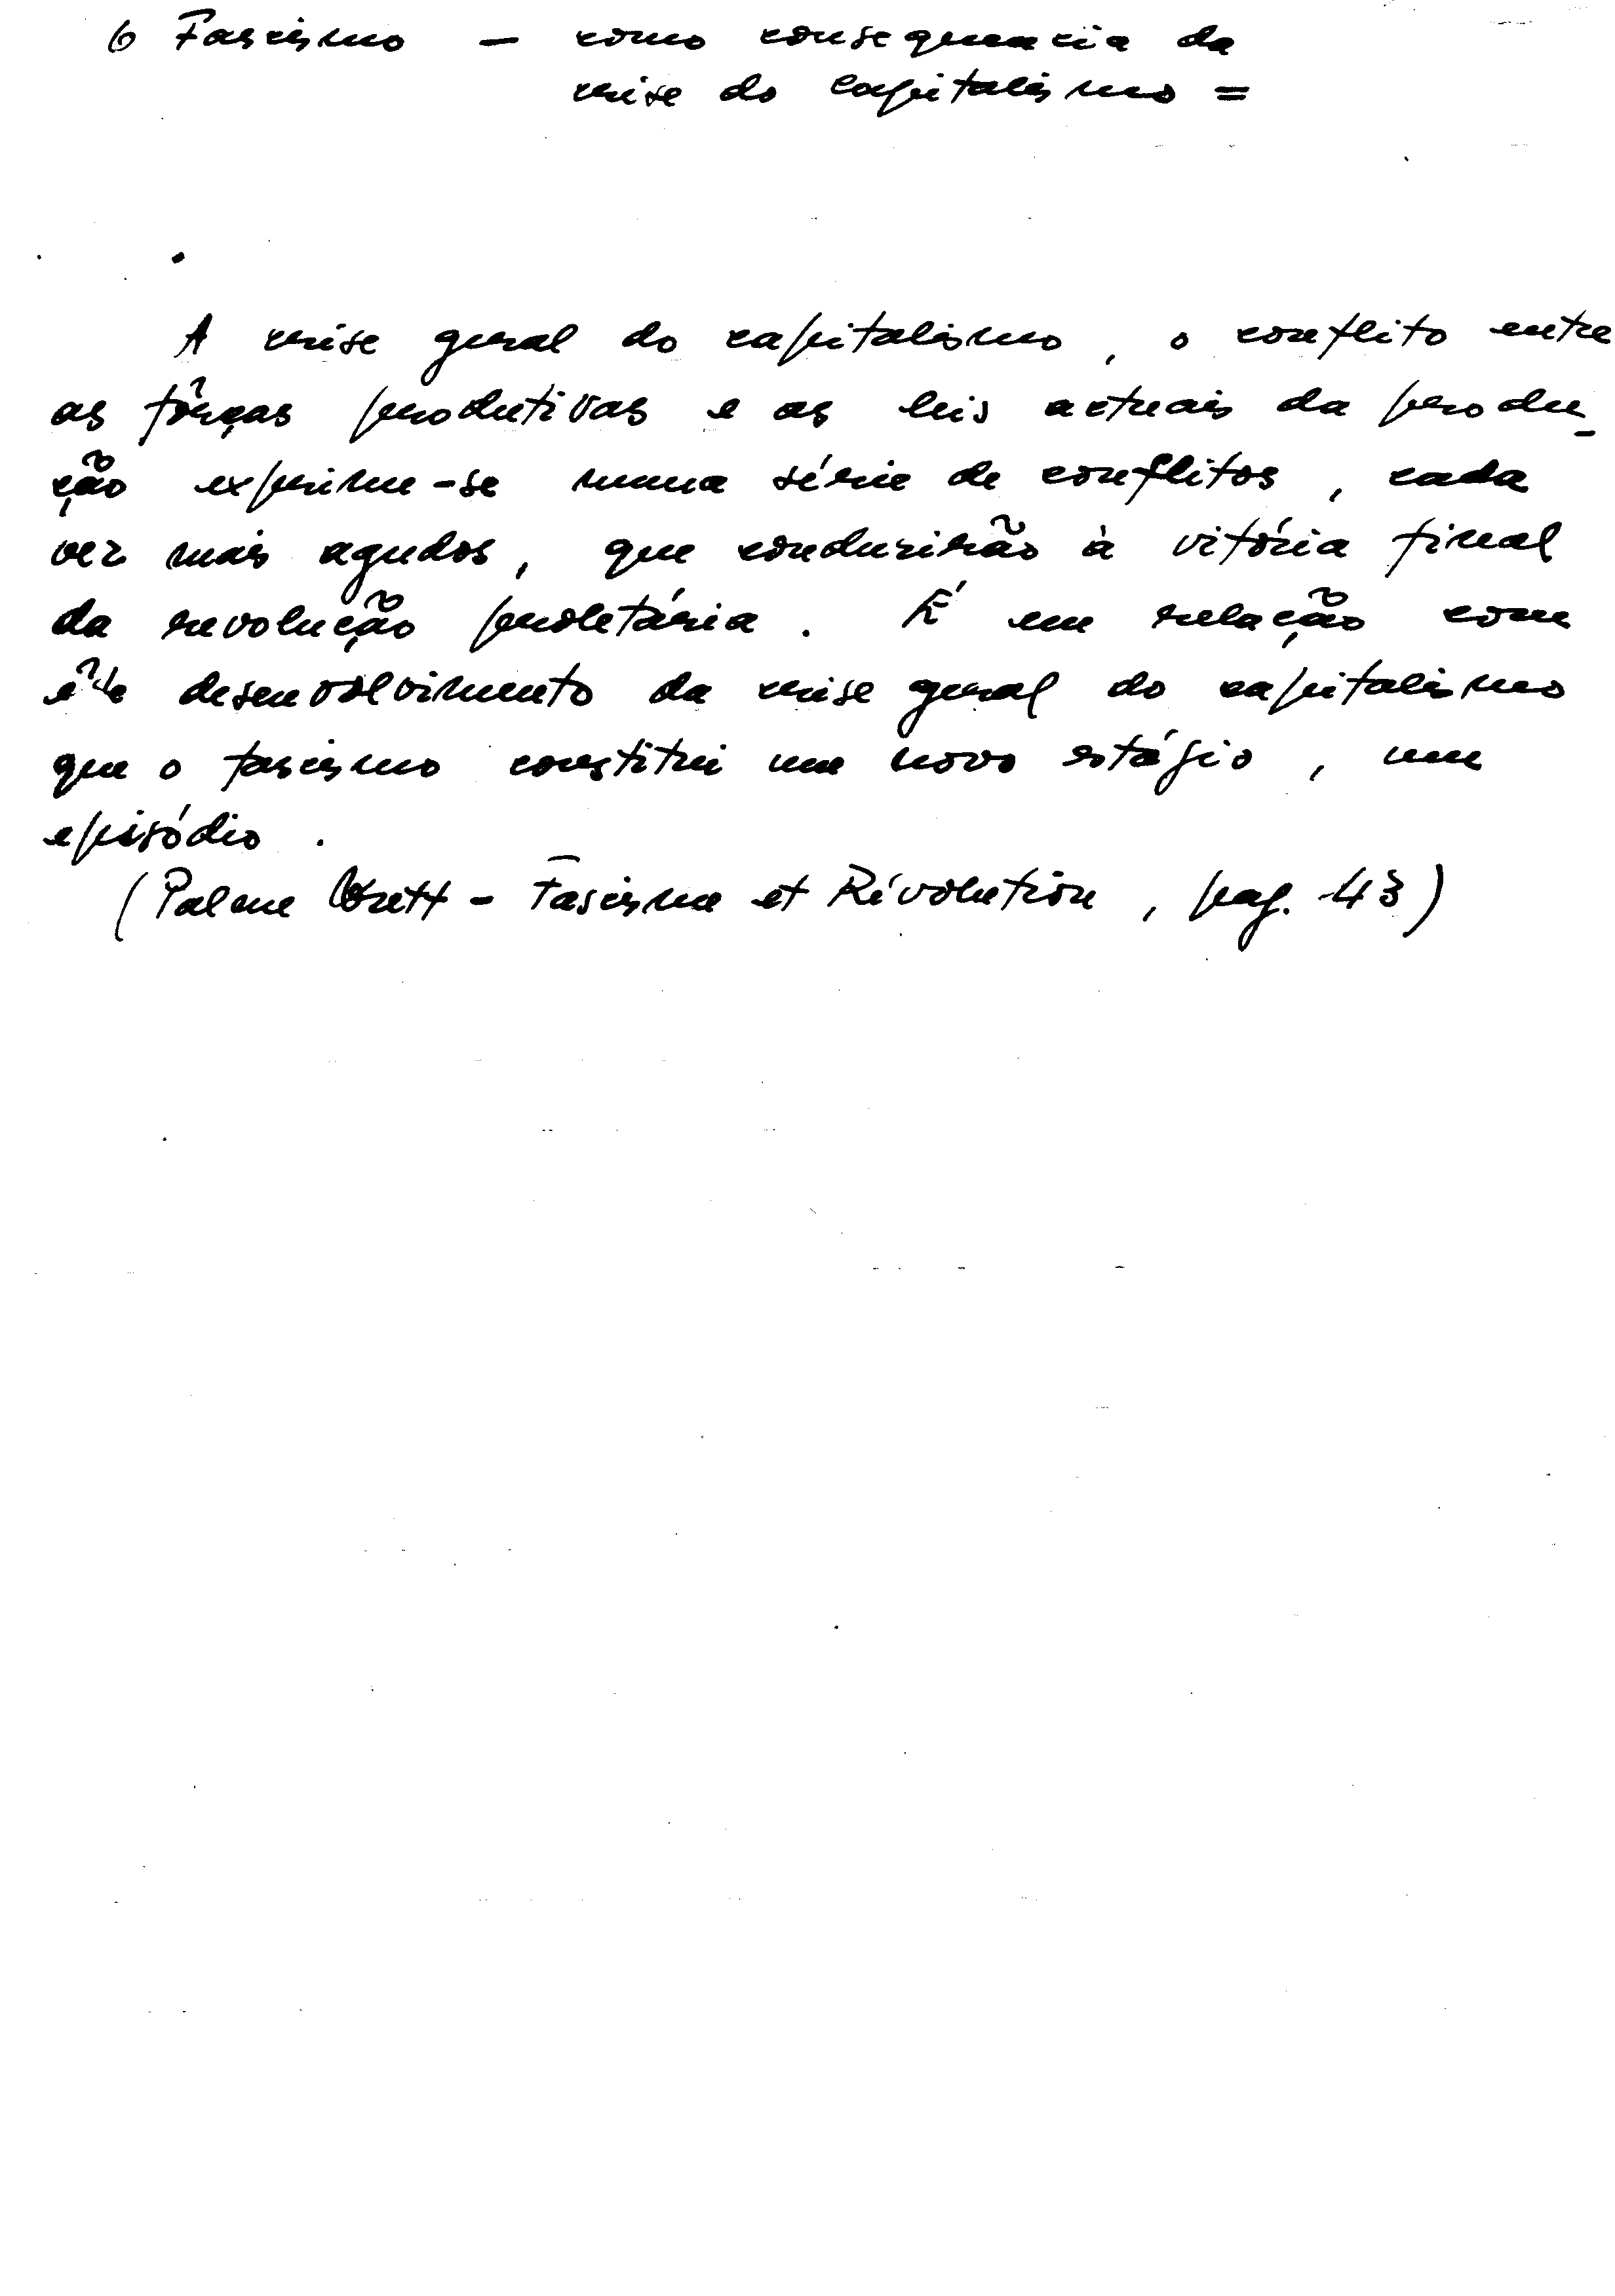 O Fascismo — como consequencia da
crise do Capitalismo =
A crise geral do capitalismo, o conflito entre
as fôrças produtivas e as leis actuais da produ-
ção exprime-se numa série de conflitos, cada
vez mais agudos, que conduzirão à vitória final
da revolução proletária. É em relação com
êste desenvolvimento da crise geral do capitalismo
que o fascismo constitui um novo estágio, um
episódio.
(Palme - Fascisme et Révolution, pag. 43)